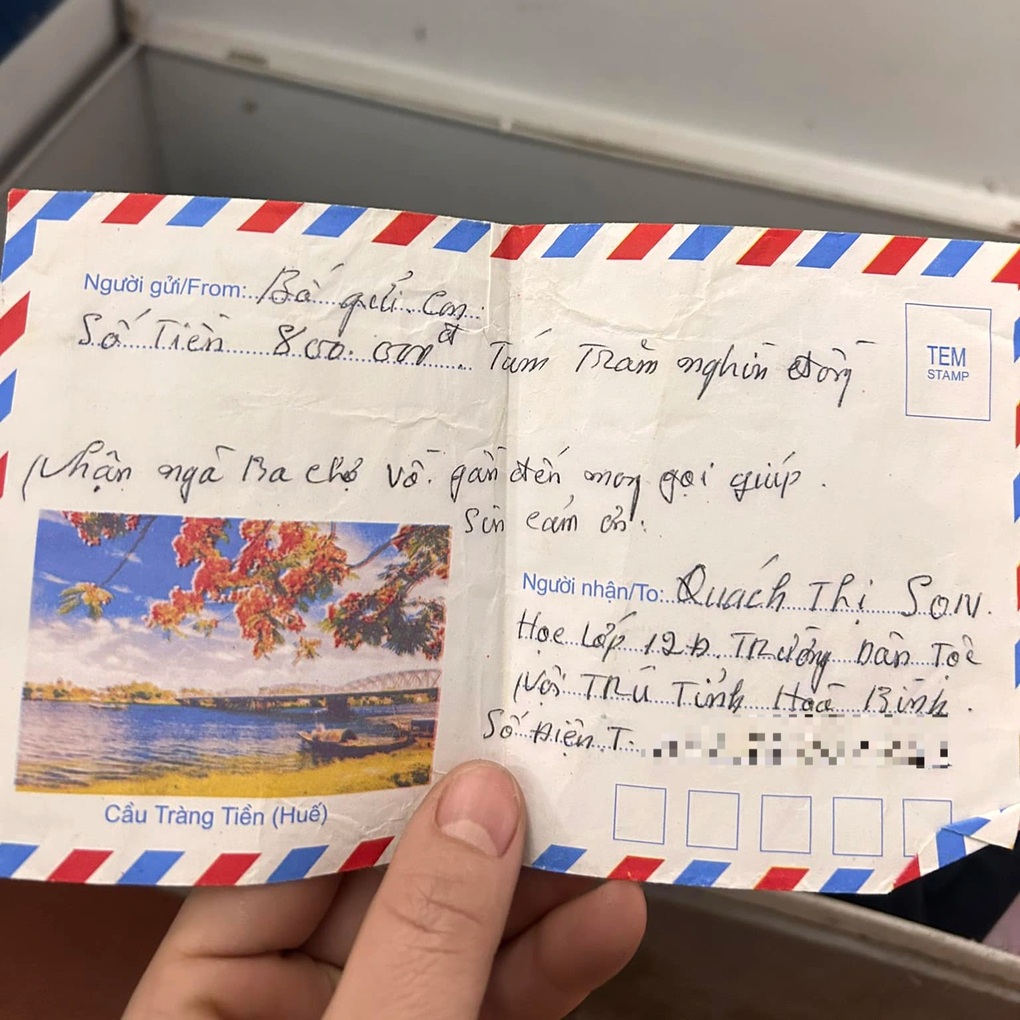 Người gửi/From: Bá gửi con
Số Tiền 800.000đ Tám Trăm nghìn đồng
TEM
STAMP
Nhận ngã Ba chợ Vồ. gần đến mong gọi giúp.
Sin cảm ơn.
Người nhận/To: Quách Thị SON.
Học Lớp 12D Trường Dân Tộc
Nội TRú Tỉnh Hoà Bình.
Số Điện T.
Cầu Tràng Tiền (Huế)